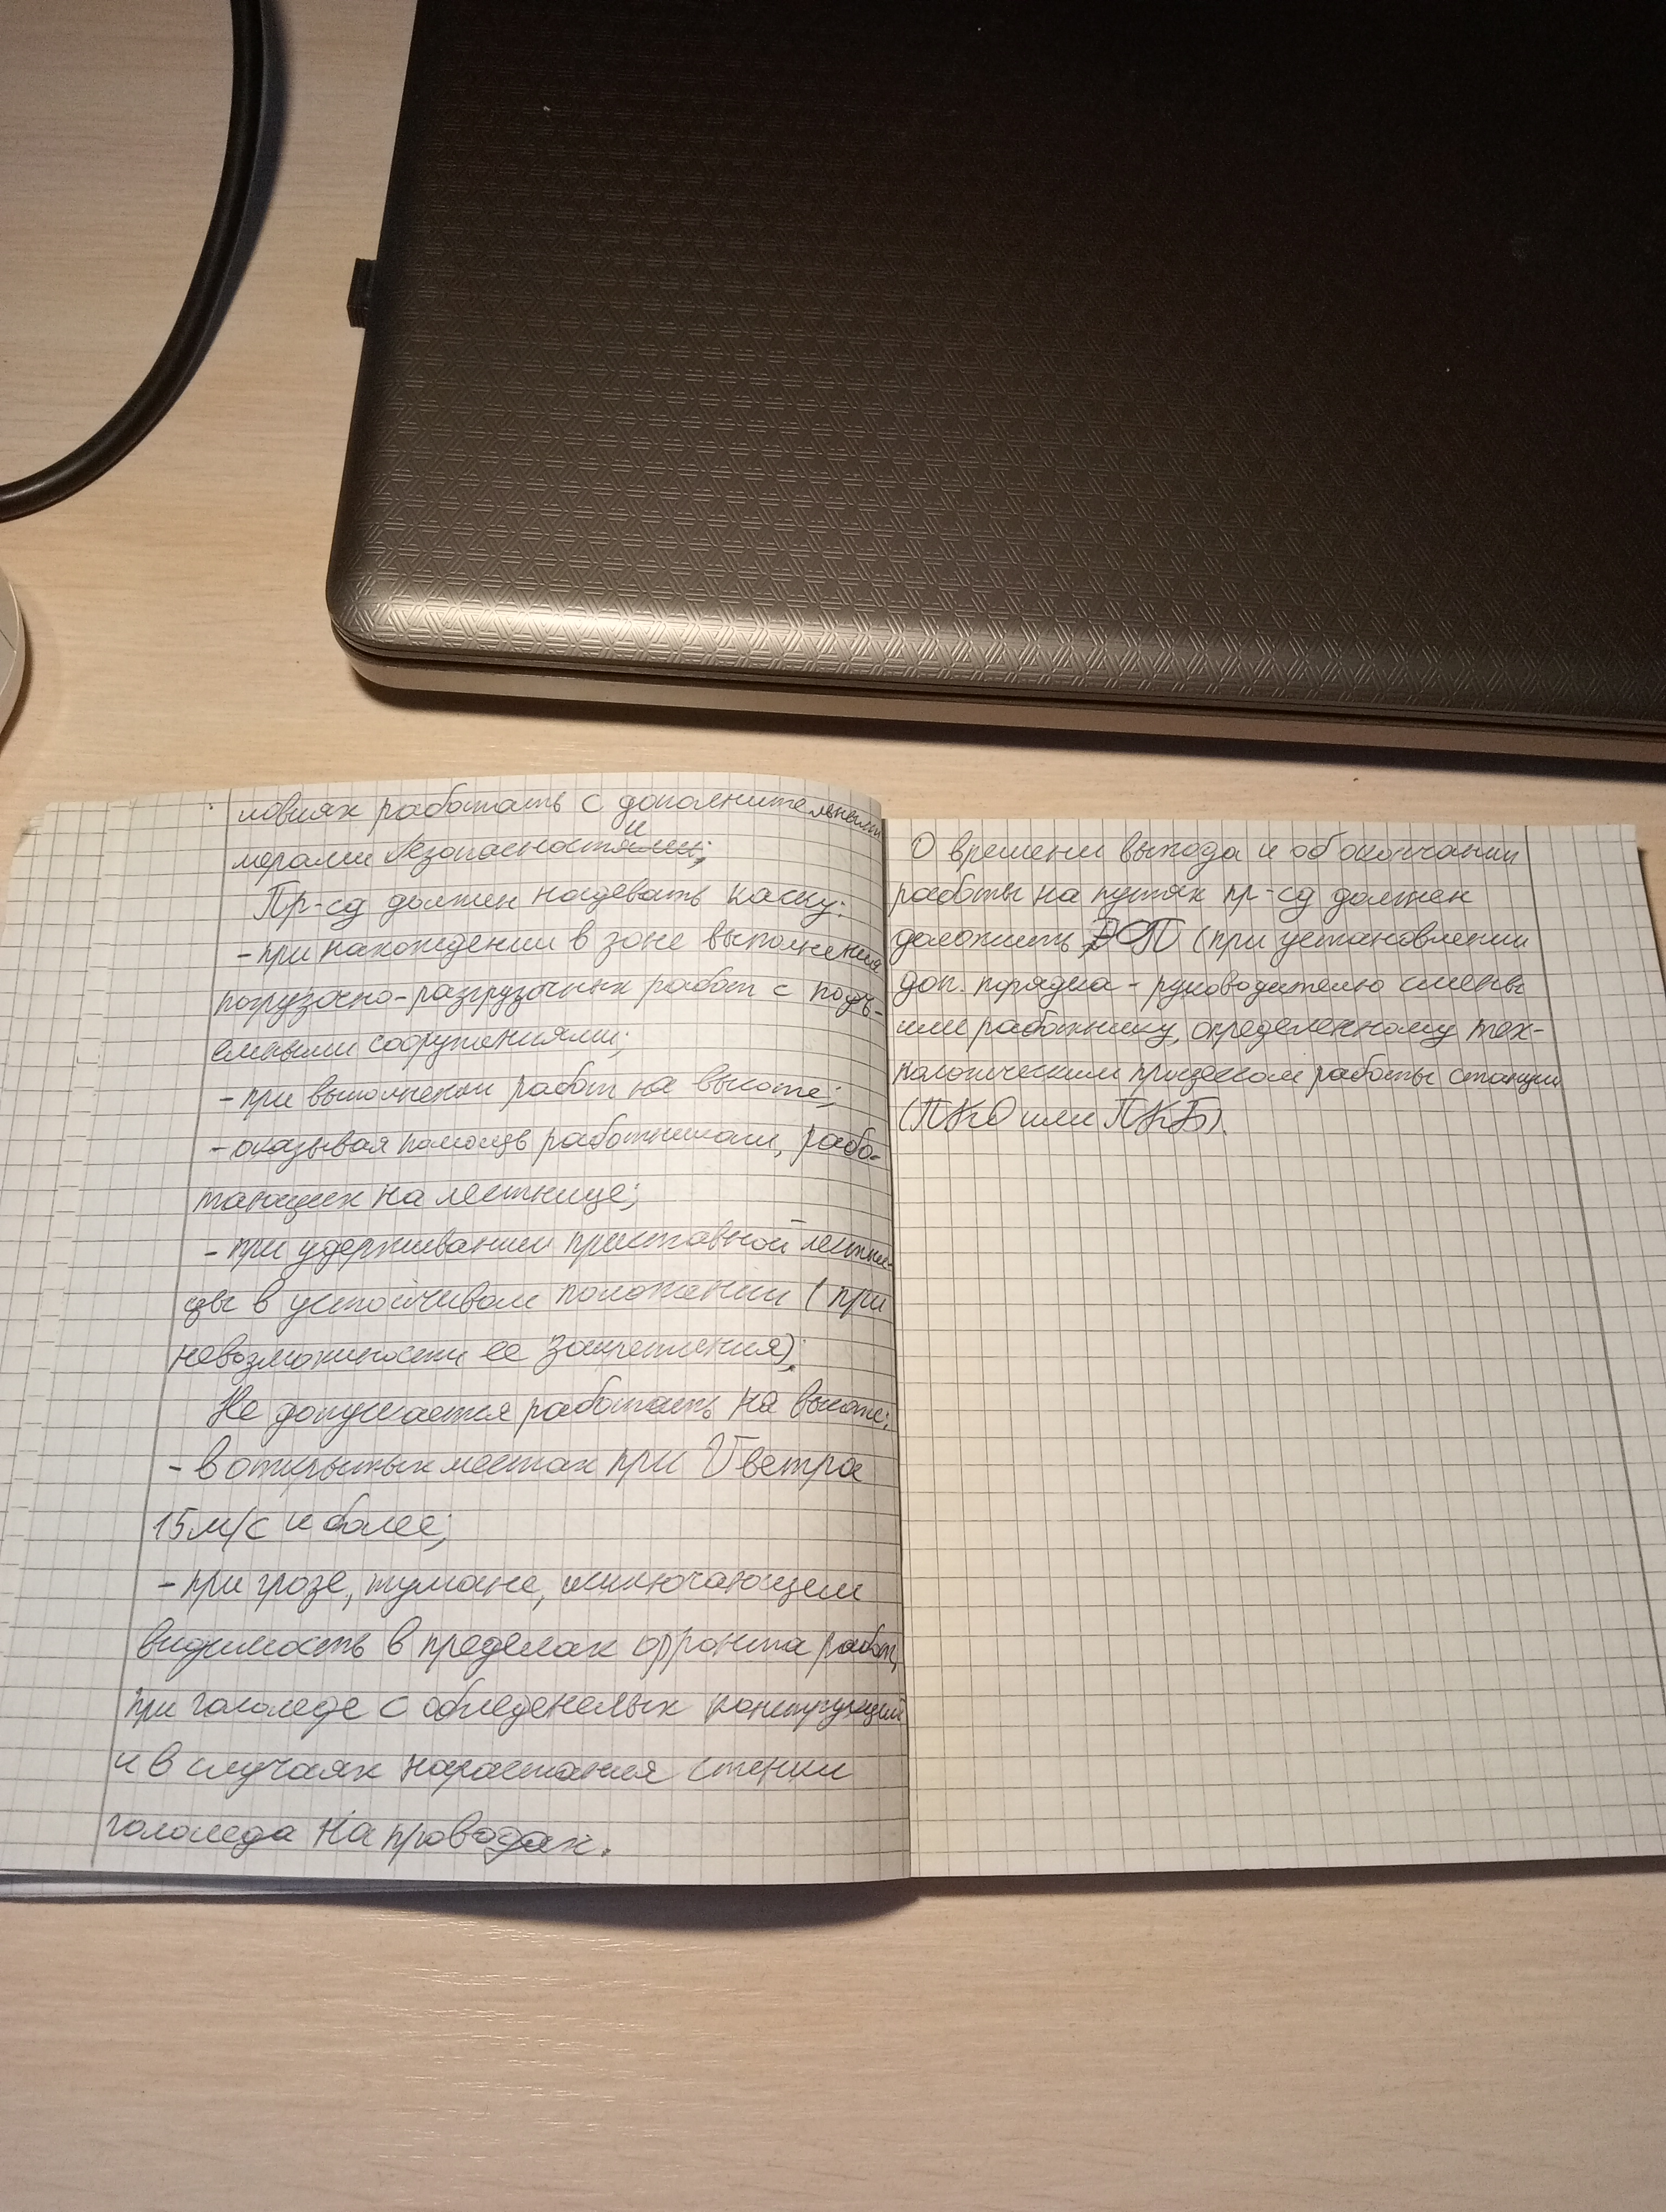 ловиях работать с дополнительными
мерами безопасности;
Пр-сд должен надевать каску:
- при нахождении в зоне выполнения
погрузочно-разгрузочных работ с подъ-
емными сооружениями;
- при выполнении работ на высоте;
- оказывая помощь работникам, рабо-
тающих на лестнице;
- при удерживании приставной лестни-
цы в устойчивом положении (при
невозможности ее закрепления).
Не допускается работать на высоте:
- в открытых местах при V ветра
15 м/с и более;
- при грозе, тумане, исключающем
видимость в пределах фронта работ,
при гололеде с обледенелых конструкций
и в случаях нарастания стенки
гололеда на проводах.
О времени выхода и об окончании
работы на путях пр-сд должен
доложить ДСП (при установлении
доп. порядка - руководителю смены
или работнику, определенному тех-
нологическим процессом работы станции
(ПКО или ПКБ).